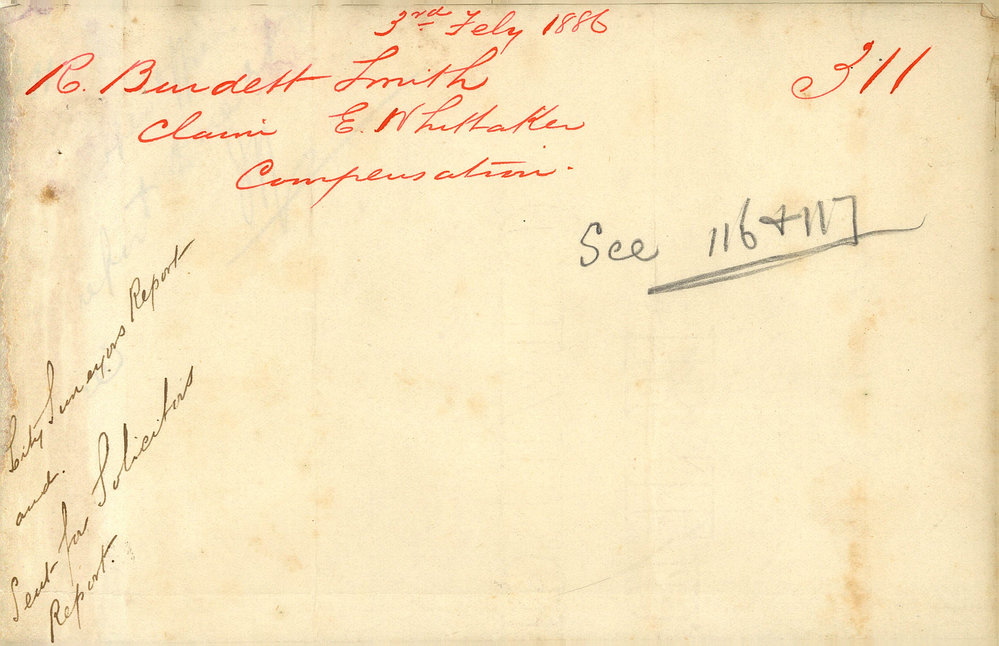 3rd Feby 1886
R. Burdett Smith
311
Claim E. Whittaker
Compensation.
See 116 & 117
City Surveyors Report
and.
Sent for Solicitors
Report.